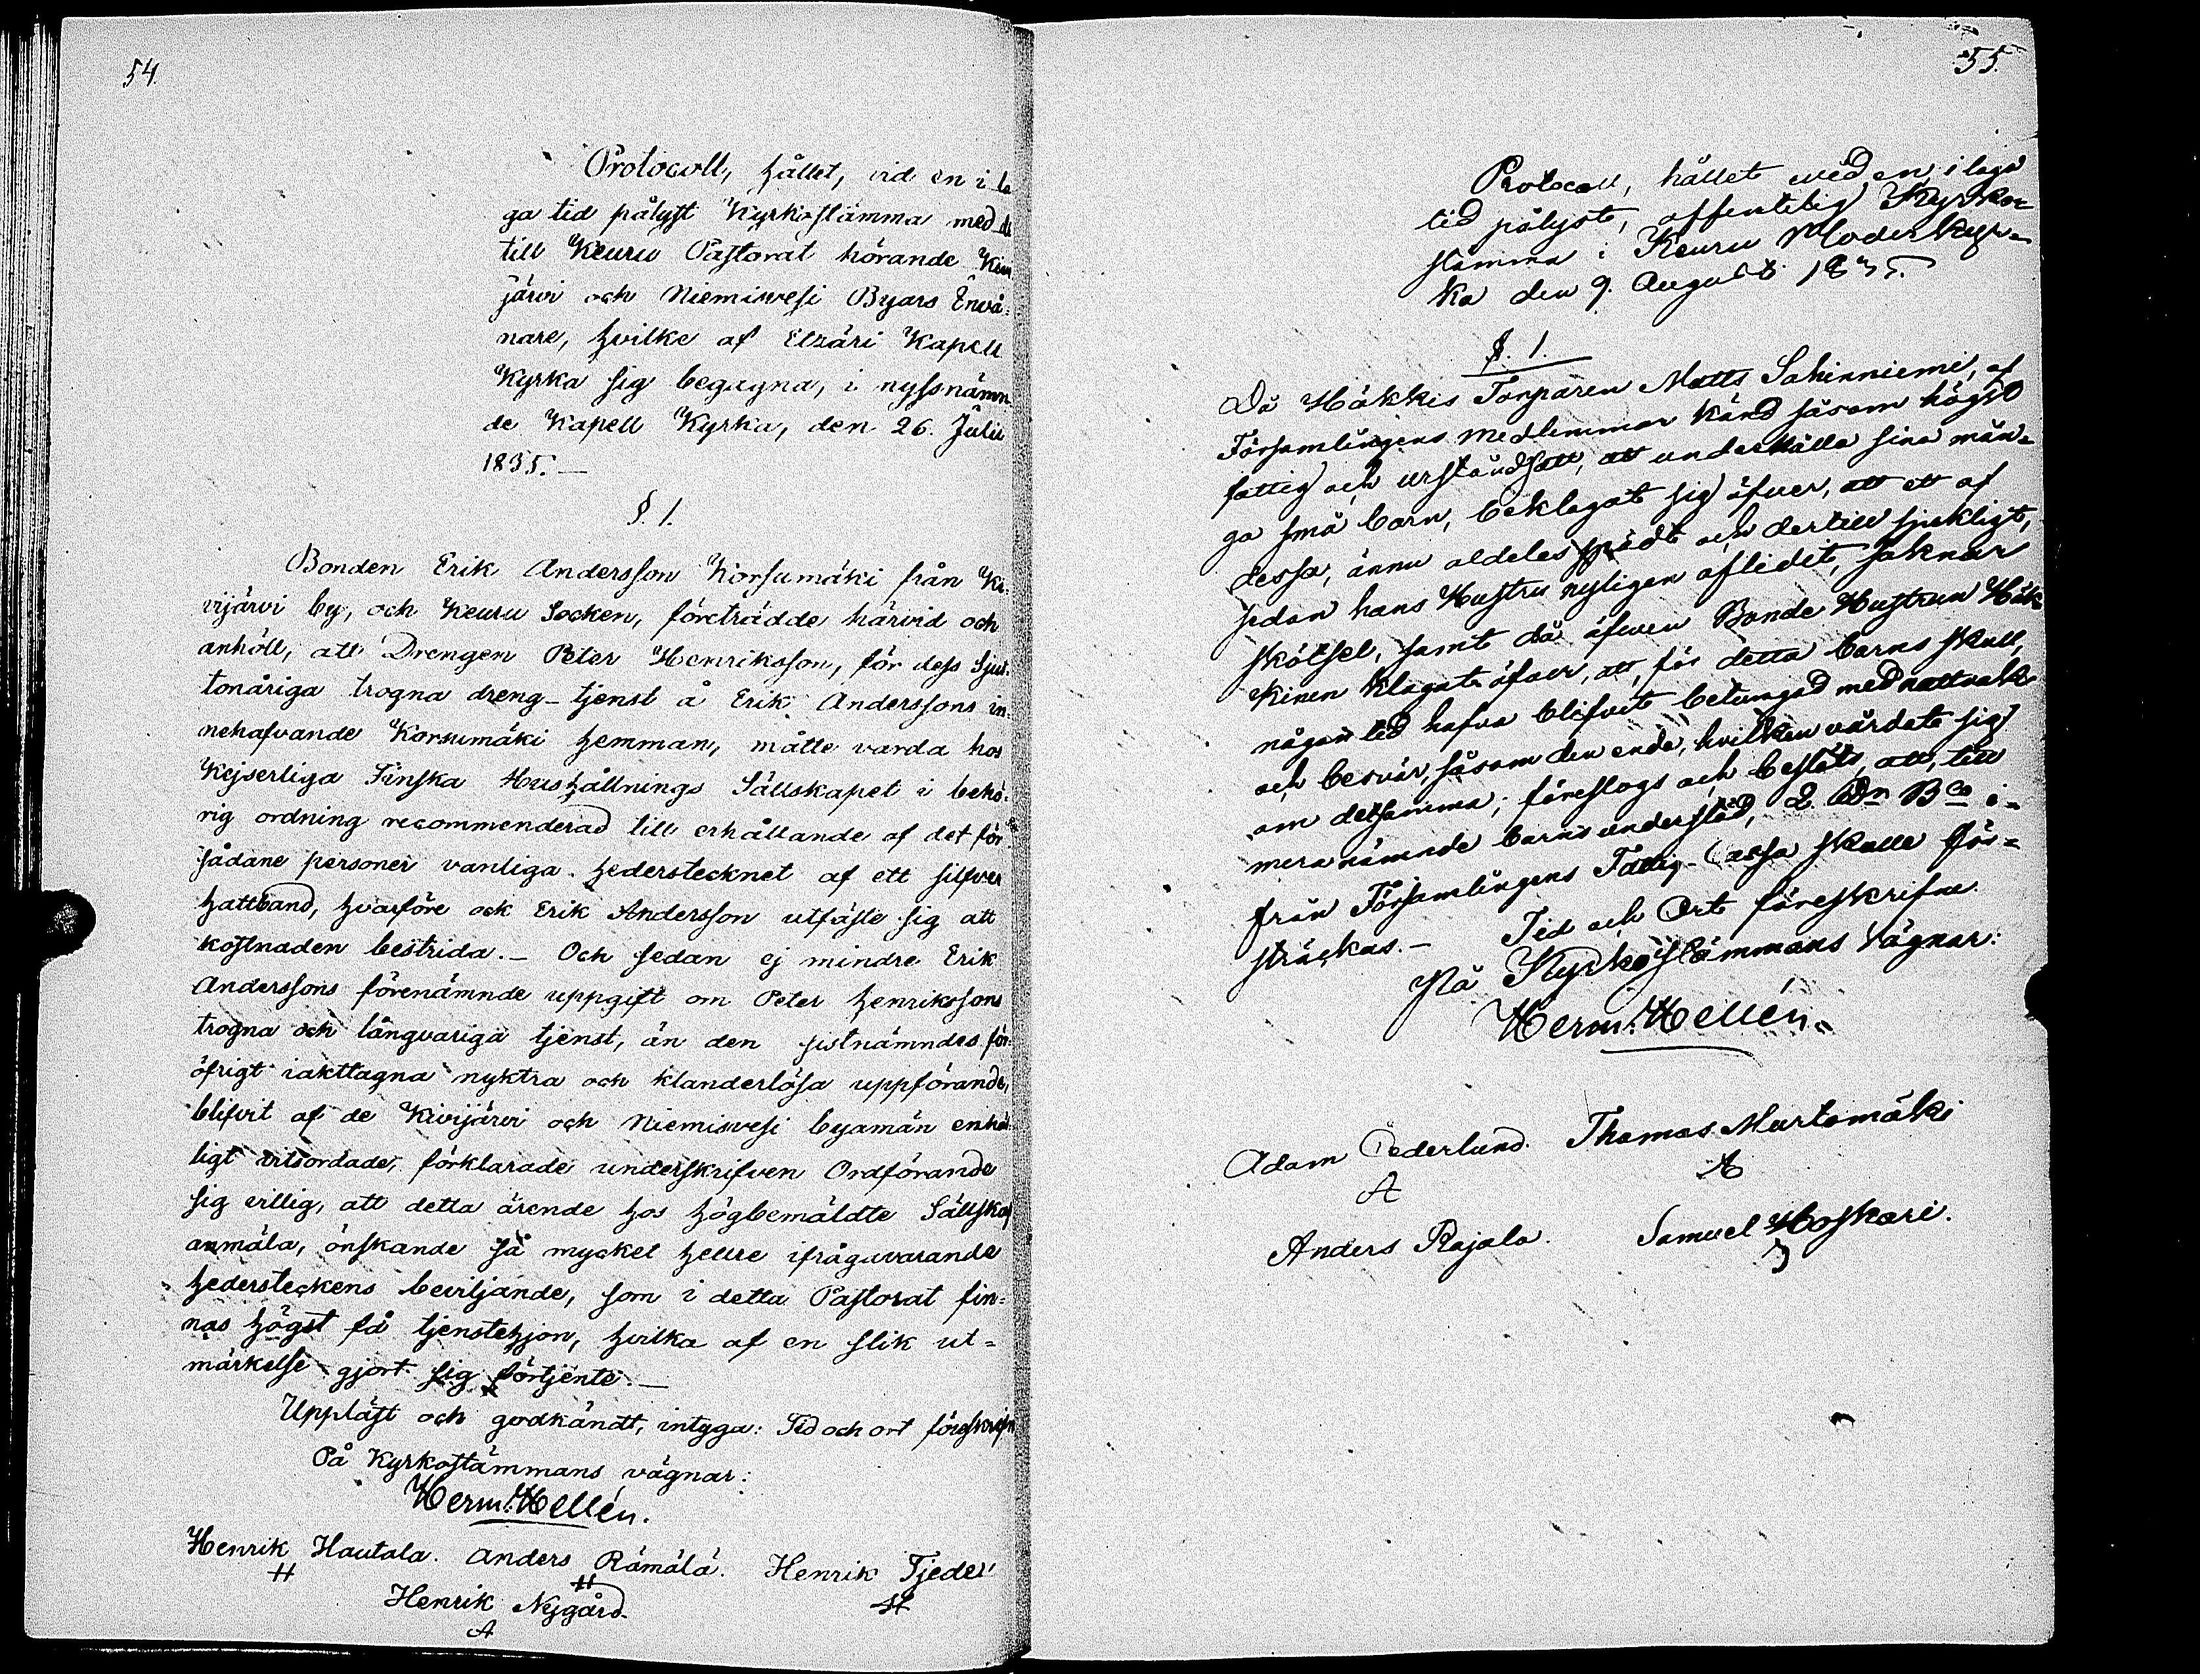 54.
Protocoll, hållet, vid en i la
ga tid pålyst Kyrkostämma med de
till Keuru Pastorat hörande Kivi
järvi och Niemisvesi Byars Invå=
nare, hvilke af Etzäri Kapell
Kyrka sig begagna, i nyssnämn
de Kapell Kyrka, den 26. Julii
1835.—
§. 1.
Bonden Erik Andersson Korsumäki från Ki=
vijärvi by, och Keuru Socken, företrädde härvid och
anhöll, att Drengen Peter Henriksson, för dess sjut=
tonåriga trogna dreng-tjenst å Erik Anderssons in=
nehafvande Korsumäki hemman, måtte varda hos
Kejserliga Finska Hushållnings Sällskapet i behö=
rig ordning recommenderad till erhållande af det för
sådane personer vanliga hederstecknet af ett silfver
hattband, hvarföre ock Erik Andersson utfäste sig att
kostnaden bestrida.— Och sedan ej mindre Erik
Anderssons förenämnde uppgift om Peter Henrikssons
trogna och långvariga tjenst, än den sistnämndes för=
öfrigt iakttagna nyktra och klanderlösa uppförande,
blifvit af de Kivijärvi och Niemisvesi byamän enhäl=
ligt vitsordade, förklarade underskrifven Ordförande
sig villig, att detta ärende hos högbemäldte Sällskap
anmäla, önskande så mycket hellre ifrågavarande
hedersteckens beviljande, som i detta Pastorat fin=
nas högst få tjenstehjon, hvilka af en slik ut=
märkelse gjort sig förtjente.—
Uppläst och godkändt, intyga: Tid och ort föreskrifn
På Kyrkostämmans vägnar:
Herm. Hellén.
Henrik Hautala. Anders Rämälä. Henrik Tjeder
Henrik Nygård.
55.
Protocoll, hållet vid en, i laga
tid pålyst, offentelig Kyrko=
stämma i Keuru Moderkyr=
ka den 9. Augusti 1835.
§. 1.
Då Häkkis Torparen Matts Sahinniemi, af
Församlingens medlemmar känd såsom högst
fattig och urståndsatt, att underhålla sina mån=
ga små barn, beklagat sig öfver, att ett af
dessa, ännu aldeles spädt och dertill sjukligt,
sedan hans Hustru nyligen aflidit, saknar
skötsel, samt då äfven Bonde Hustrun Häk=
kinen klagat öfver, att, för detta barns skull,
någon tid hafva blifvit betungad med nattvak
och besvär, såsom den enda, hvilken vårdat sig
om detsamma; föreslogs och beslöts, att, till
mera nämnde barns understöd, 2. Rdr Bco
från Församlingens Fattig-Cassa skulle för=
sträckas.— Tid och Ort föreskrifne.
På Kyrkostämmans vägnar:
Herm. Hellén.
Adam Cederlund. Thomas Murtomäki
A
Anders Rajala. Samuel Hoskari.